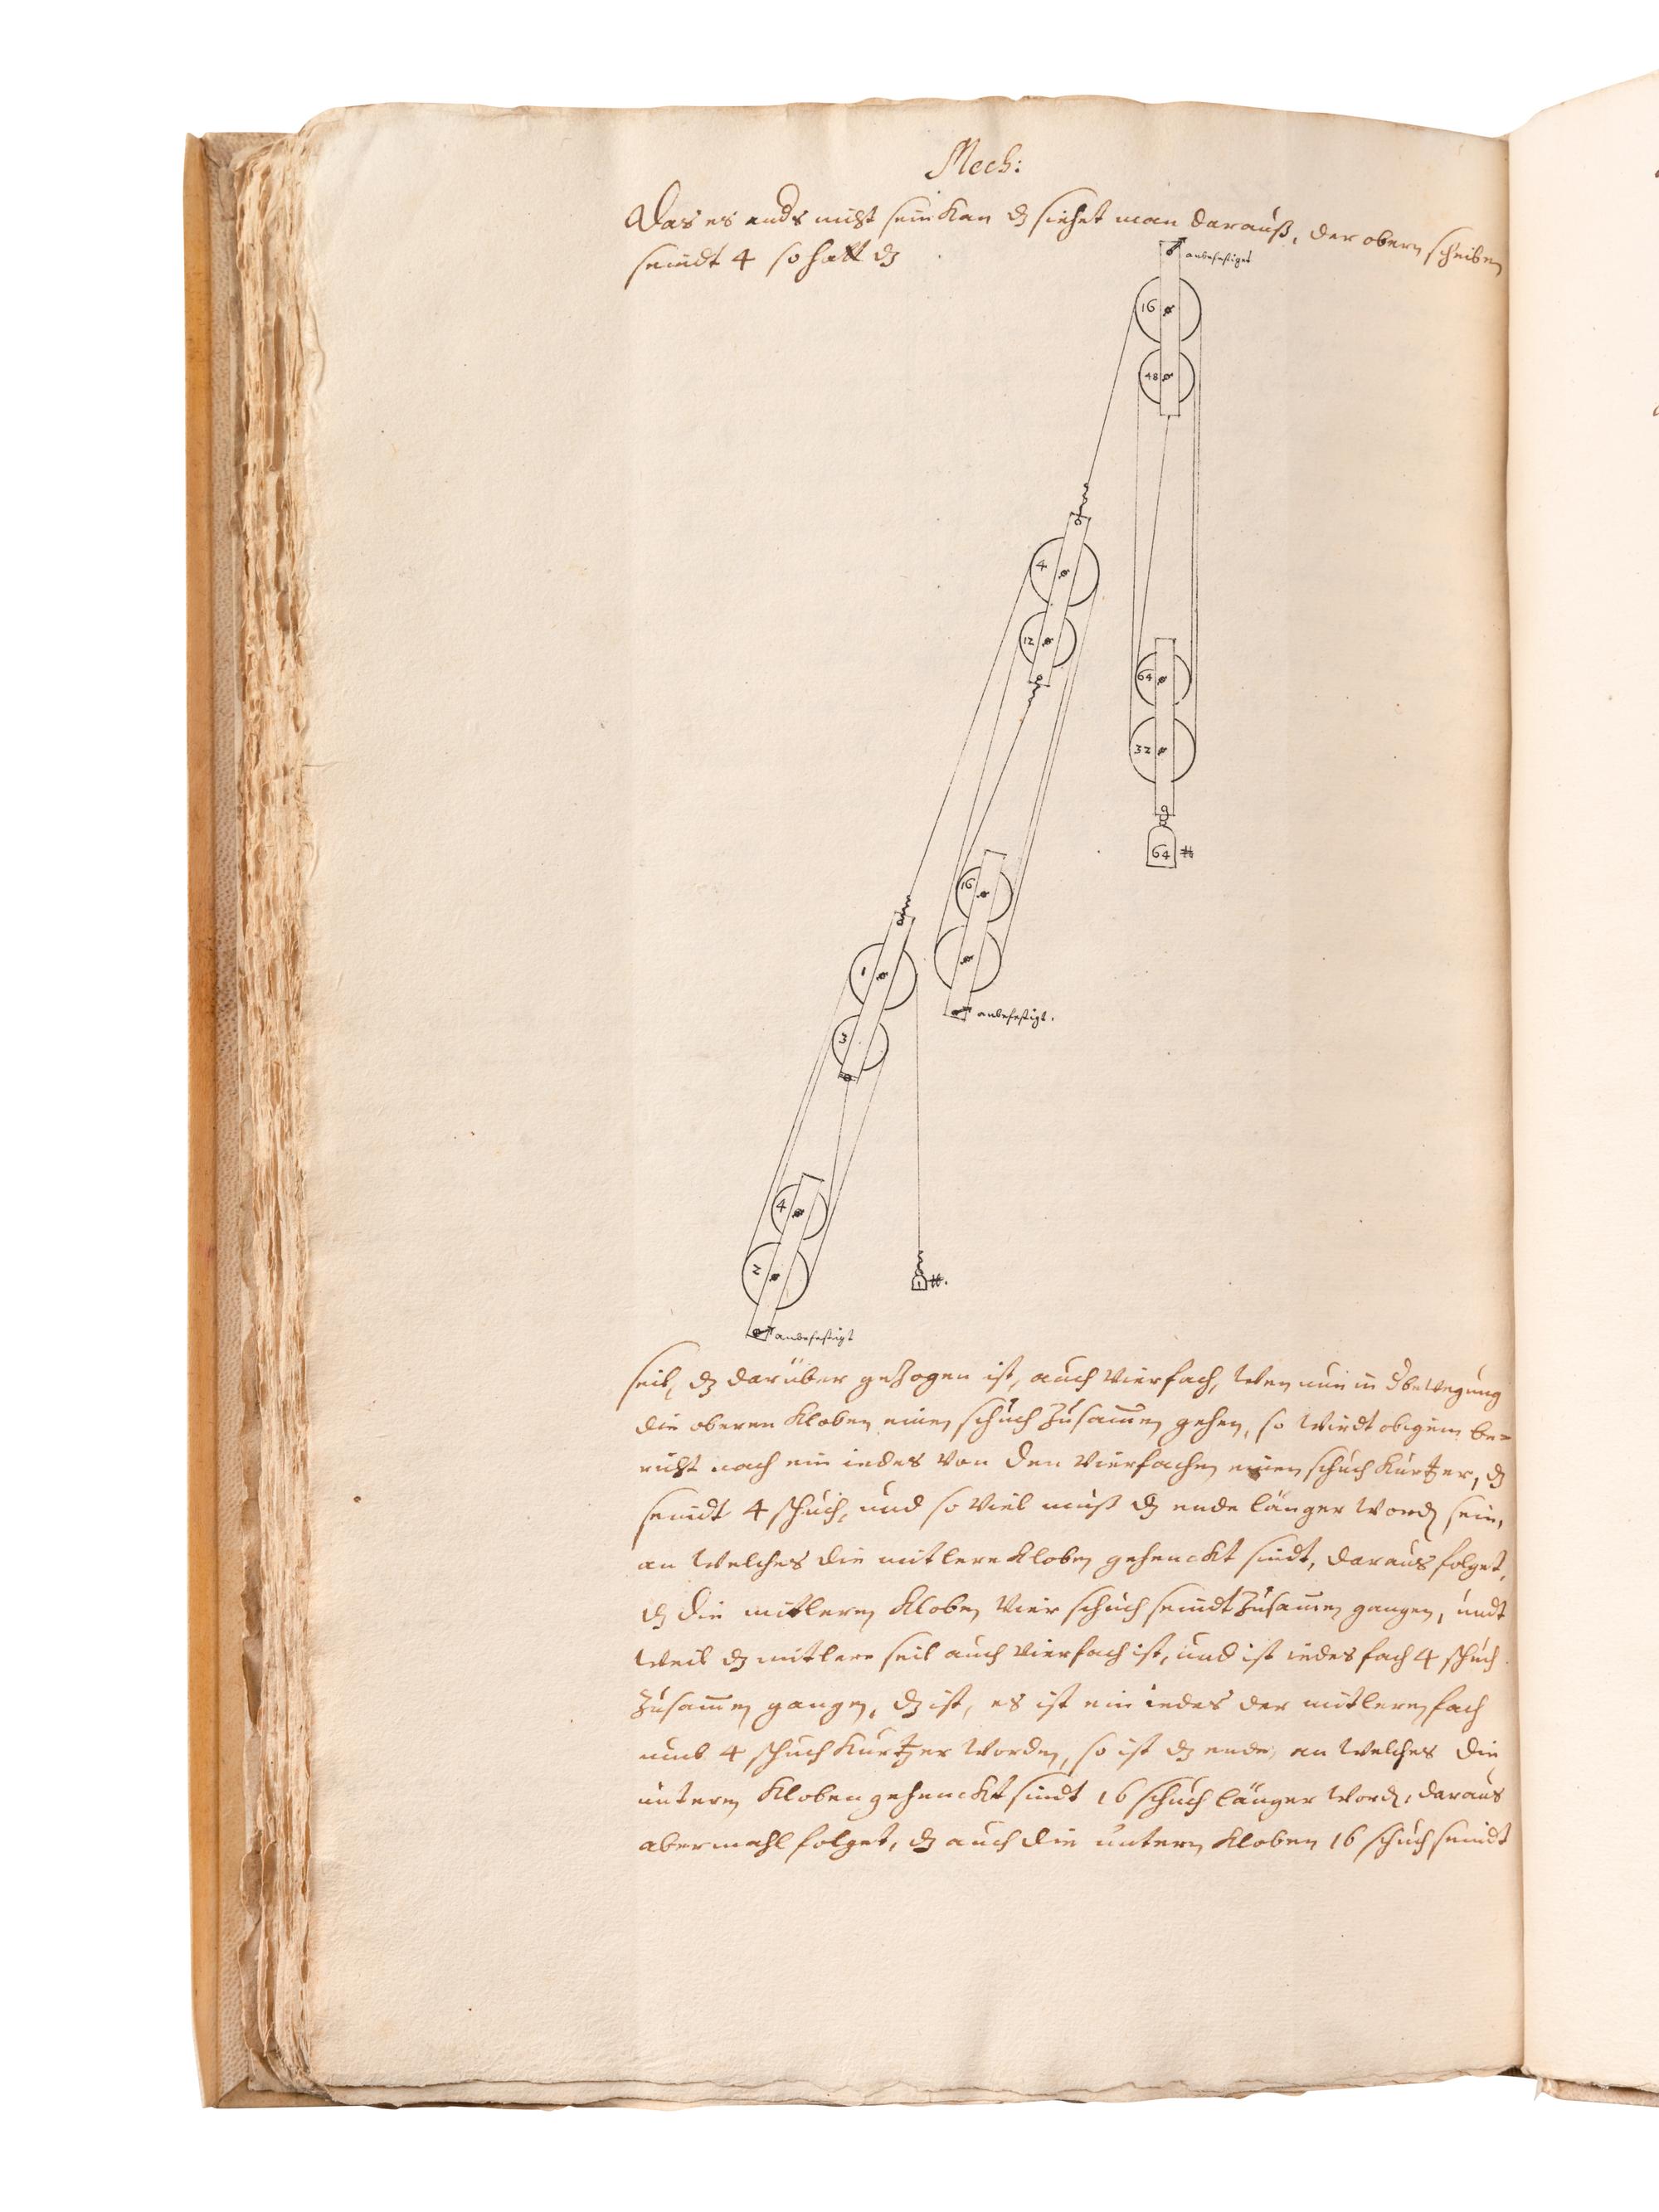 Mech:
Das es anders nicht sein kan dz siehet man darauß, der obern scheiben
seindt 4 so hatt dz
anbefestiget
16
48
4
12
64
32
64 ℔
16
1
anbefestigt.
3
4
2
1 ℔.
anbefestigt
seil, dz darüber gezogen ist, auch vierfach, wen nun in d bewegung
die oberen Kloben einen schuch zusamen gehen, so wirdt obigem be=
richt nach ein iedes von den vierfachen einen schuch kurtzer, dz
seindt 4 schuch, und so viel muß dz ende länger word sein,
an welches die mitlere Kloben gehenckt sindt, daraus folget,
dz die mitleren Kloben vier schuch seindt zusamen gangen, undt
weil dz mitlere seil auch vierfach ist, und ist iedes fach 4 schuch
zusamen gangen, dz ist, es ist ein iedes der mitleren fach
umb 4 schuch kurtzer worden, so ist dz ende, an welches die
untern Kloben gehenckt sindt 16 schuch länger word, daraus
abermahl folget, dz auch die untern Kloben 16 schuch seindt